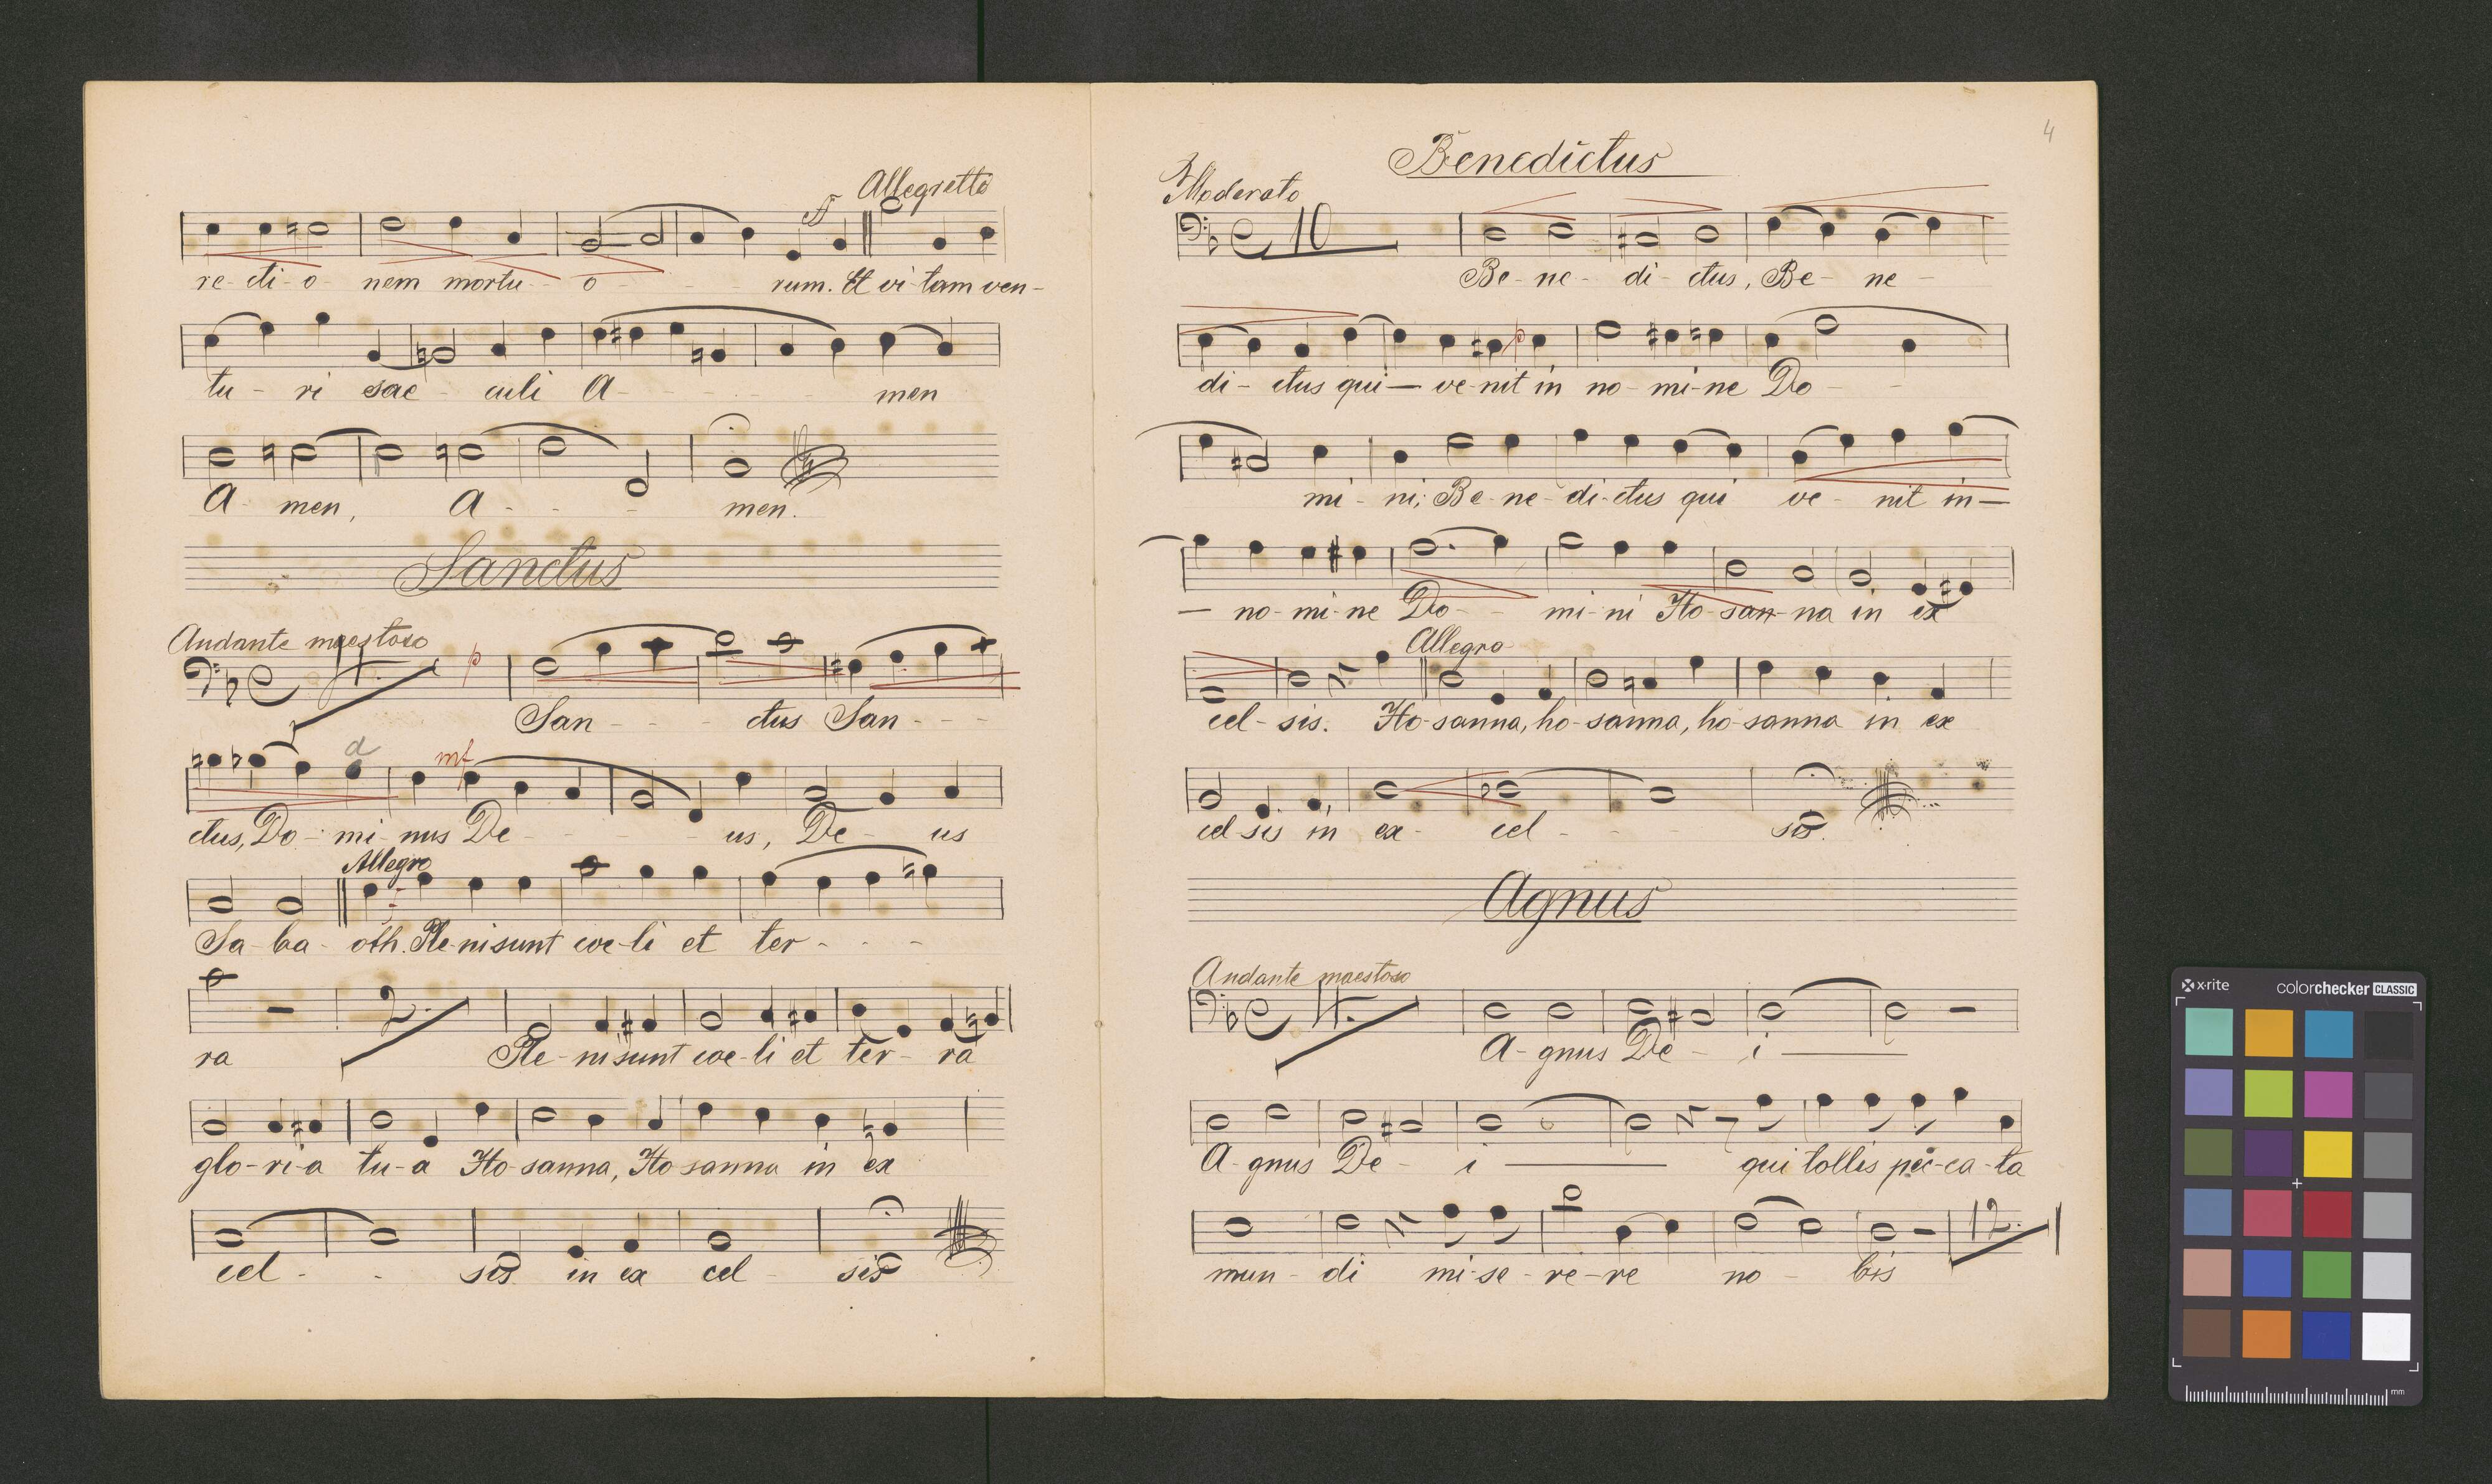 Allegretto
f
re-cti-o-nem mortu-o-rum. Et vi-tam ven-
tu-ri sae-culi A-men
A-men, A-men.
Sanctus
Andante maestoso
4. p
San---ctus San---
d mf
ctus, Do-mi-nus De---us, De-us
Allegro
Sa-ba-oth. Ple-ni sunt coe-li et ter---
2.
ra Ple-ni sunt coe-li et ter-ra
glo-ri-a tu-a Ho-sanna, Ho-sanna in ex
cel--sis in ex cel-sis
4
Benedictus
Moderato
10
Be-ne-di-ctus, Be-ne-
p
di-ctus qui— ve-nit in no-mi-ne Do--
mi-ni; Be-ne-di-ctus qui ve-nit in—
— no-mi-ne Do--mi-ni Ho-san-na in ex
Allegro
cel-sis. Ho-sanna, ho-sanna, ho-sanna in ex
cel-sis in ex-cel---sis.
Agnus
Andante maestoso
4.
A-gnus De-i —
A-gnus De-i — qui tollis pec-ca-ta
12.
mun-di mi-se-re-re no-bis
x-rite colorchecker CLASSIC
mm